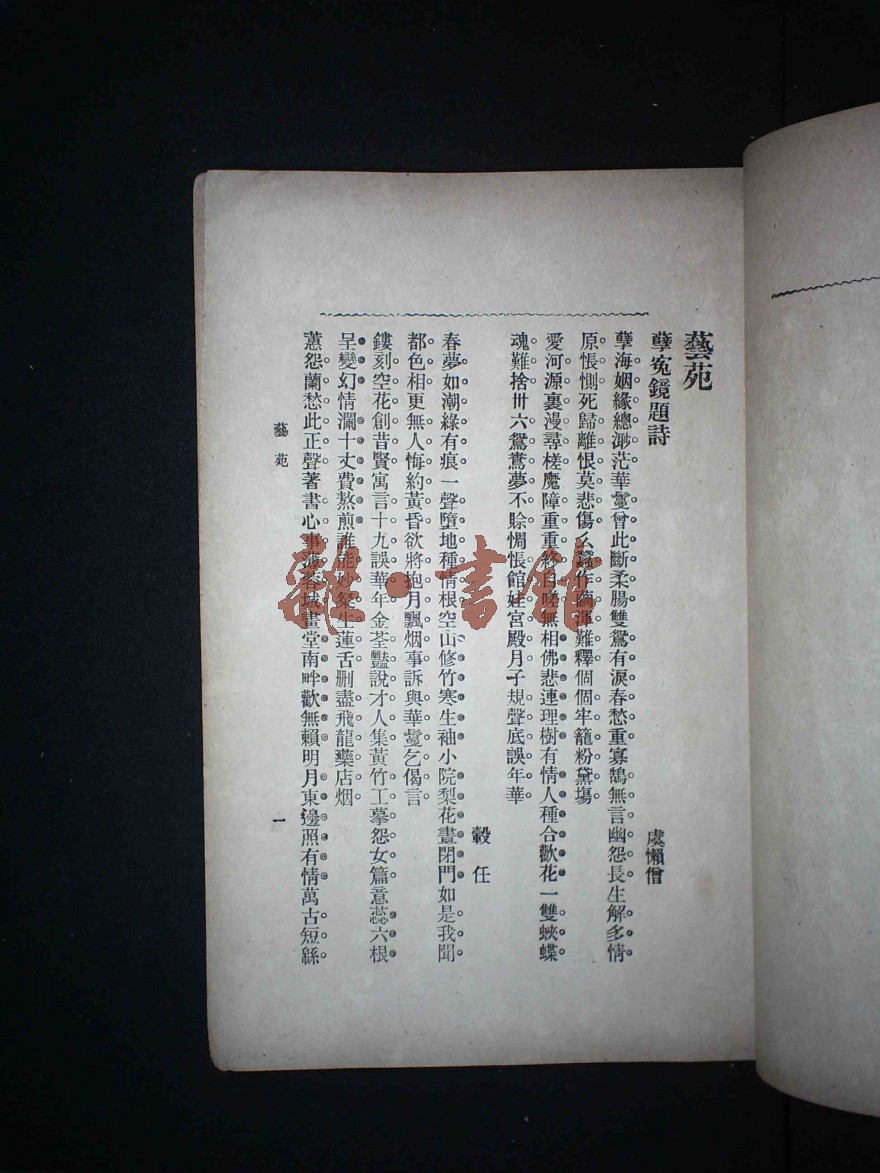 藝苑
孽冤鏡題詩
虞懶僧
孽海姻緣總渺茫華鬘曾此斷柔腸雙鴛有淚春愁重寡鵠無言幽怨長生解多情
原悵惻死歸離恨莫悲傷么蠶作繭渾難釋個個牢籠粉黛場
愛河源裏漫尋槎魔障重重終自嗟無相佛悲連理樹有情人種合歡花一雙蛺蝶
魂難捨卅六鴛鴦夢不賒惆悵館娃宮殿月子規聲底誤年華
穀任
春夢如潮綠有痕一聲墮地種情根空山修竹寒生袖小院梨花晝閉門如是我聞
都色相更無人悔約黃昏欲將抱月飄烟事訴與華鬘乞偈言
鏤刻空花創昔賢寓言十九誤華年金荃豔說才人集黃竹工摹怨女篇意蕊六根
呈變幻情瀾十丈費熬煎誰能妙粲生蓮舌刪盡飛龍藥店烟
蕙怨蘭愁此正聲著書心事蓉城畫堂南畔歡無賴明月東邊照有情萬古短緜
藝苑
一
雜·書館